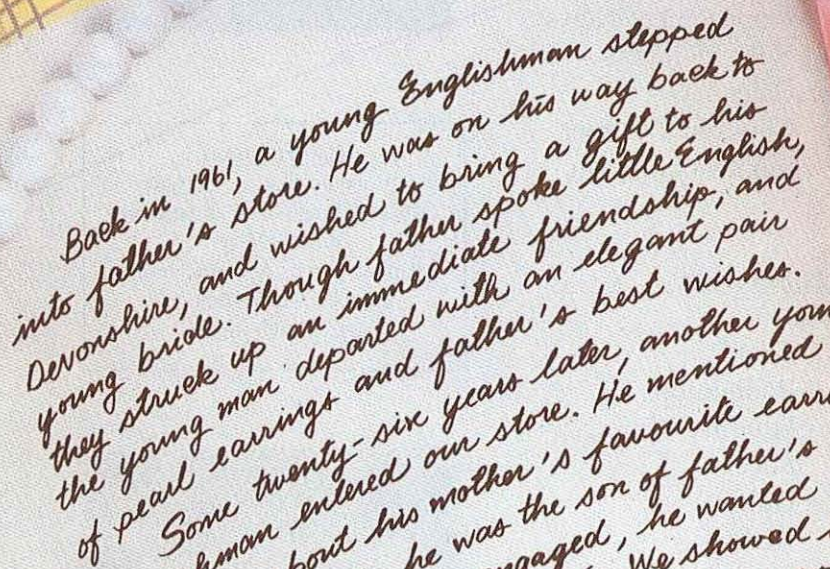 Back in 1961, a young Englishman stepped
into father's store. He was on his way back to
Devonshire, and wished to bring a gift to his
young bride. Though father spoke little English,
they struck up an immediate friendship, and
the young man departed with an elegant pair
of pearl earrings and father's best wishes.
Some twenty-six years later, another
entered our store. He mentioned
his mother's favourite
he was the son of father's
he wanted
We showed